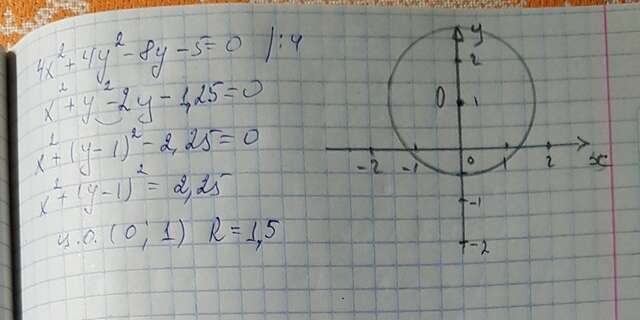 4x² + 4y² - 8y - 5 = 0 /:4
x² + y² - 2y - 1,25 = 0
x² + (y-1)² - 2,25 = 0
x² + (y-1)² = 2,25
ц.о. (0; 1) R = 1,5
y
2
0 1
-2 -1 0 1 2 x
-1
-2